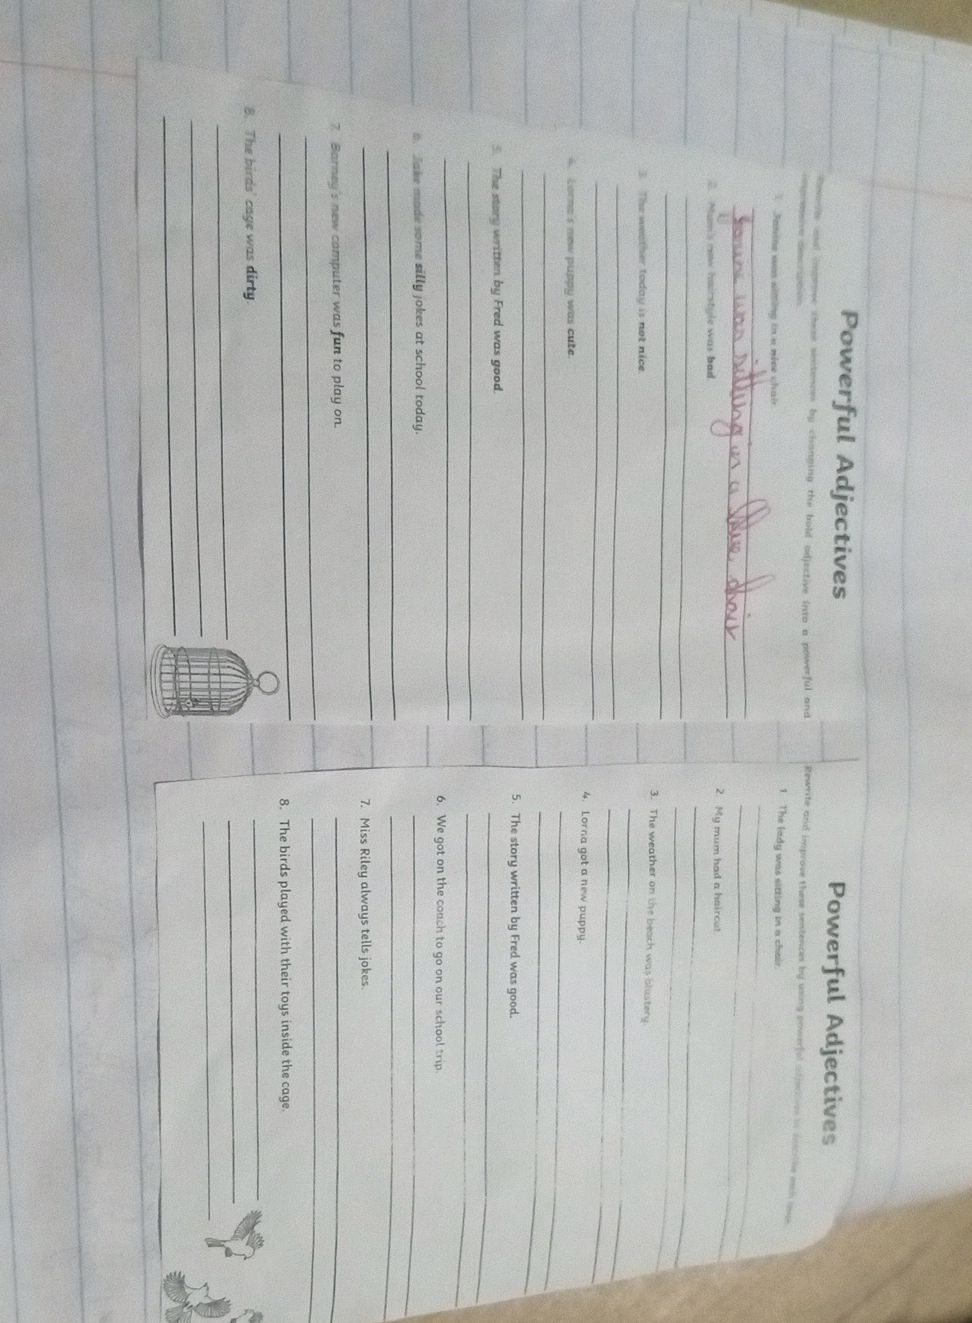 Powerful Adjectives
Rewrite and improve these sentences by changing the bold adjective into a powerful and
impressive description.
1. Janine was sitting in a nice chair
was sitting in a chair
2. Mum's new hairstyle was bad
3. The weather today is not nice.
4. Lorna's new puppy was cute.
5. The story written by Fred was good.
6. Jake made some silly jokes at school today.
7. Barney's new computer was fun to play on.
8. The birds' cage was dirty.
Powerful Adjectives
Rewrite and improve these sentences by using powerful adjectives to describe each noun.
1. The lady was sitting in a chair.
2. My mum had a haircut
3. The weather on the beach was blustery.
4. Lorna got a new puppy.
5. The story written by Fred was good.
6. We got on the coach to go on our school trip.
7. Miss Riley always tells jokes.
8. The birds played with their toys inside the cage.